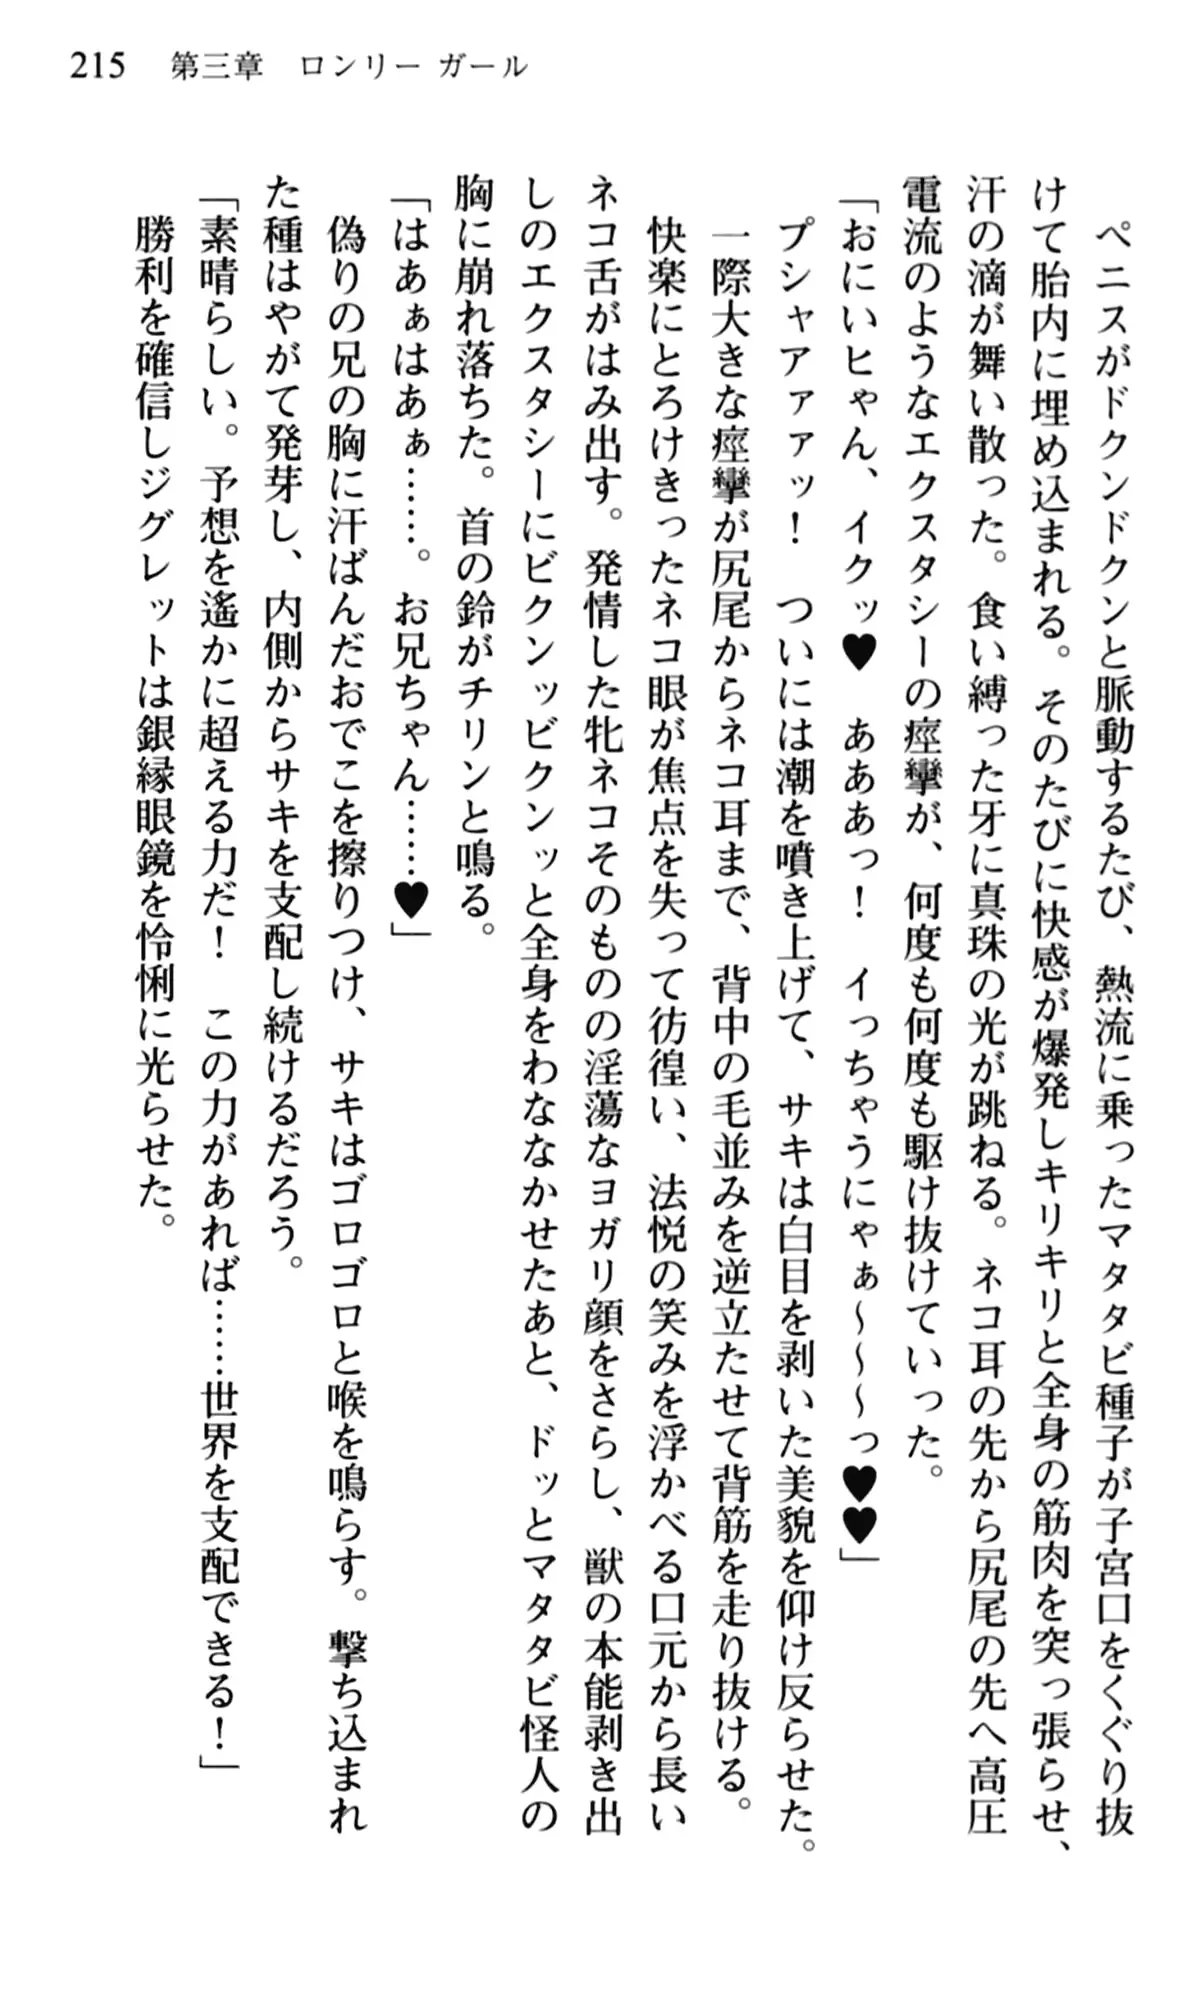 215 第三章 ロンリー ガール
ペニスがドクンドクンと脈動するたび、熱流に乗ったマタタビ種子が子宮口をくぐり抜
けて胎内に埋め込まれる。そのたびに快感が爆発しキリキリと全身の筋肉を突っ張らせ、
汗の滴が舞い散った。食い縛った牙に真珠の光が跳ねる。ネコ耳の先から尻尾の先へ高圧
電流のようなエクスタシーの痙攣が、何度も何度も駆け抜けていった。
「おにいヒゃん、イクッ♥ あああっ！ イっちゃうにゃぁ～～～っ♥♥」
プシャアァァッ！ ついには潮を噴き上げて、サキは白目を剥いた美貌を仰け反らせた。
一際大きな痙攣が尻尾からネコ耳まで、背中の毛並みを逆立たせて背筋を走り抜ける。
快楽にとろけきったネコ眼が焦点を失って彷徨い、法悦の笑みを浮かべる口元から長い
ネコ舌がはみ出す。発情した牝ネコそのものの淫蕩なヨガリ顔をさらし、獣の本能剥き出
しのエクスタシーにビクンッビクンッと全身をわななかせたあと、ドッとマタタビ怪人の
胸に崩れ落ちた。首の鈴がチリンと鳴る。
「はあぁはあぁ……。お兄ちゃん……♥」
偽りの兄の胸に汗ばんだおでこを擦りつけ、サキはゴロゴロと喉を鳴らす。撃ち込まれ
た種はやがて発芽し、内側からサキを支配し続けるだろう。
「素晴らしい。予想を遙かに超える力だ！ この力があれば……世界を支配できる！」
勝利を確信しジグレットは銀縁眼鏡を怜悧に光らせた。